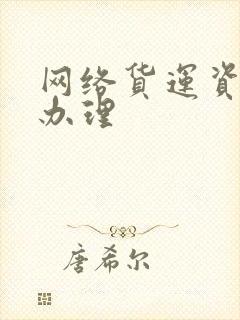 网络货运资
办理
唐希尔